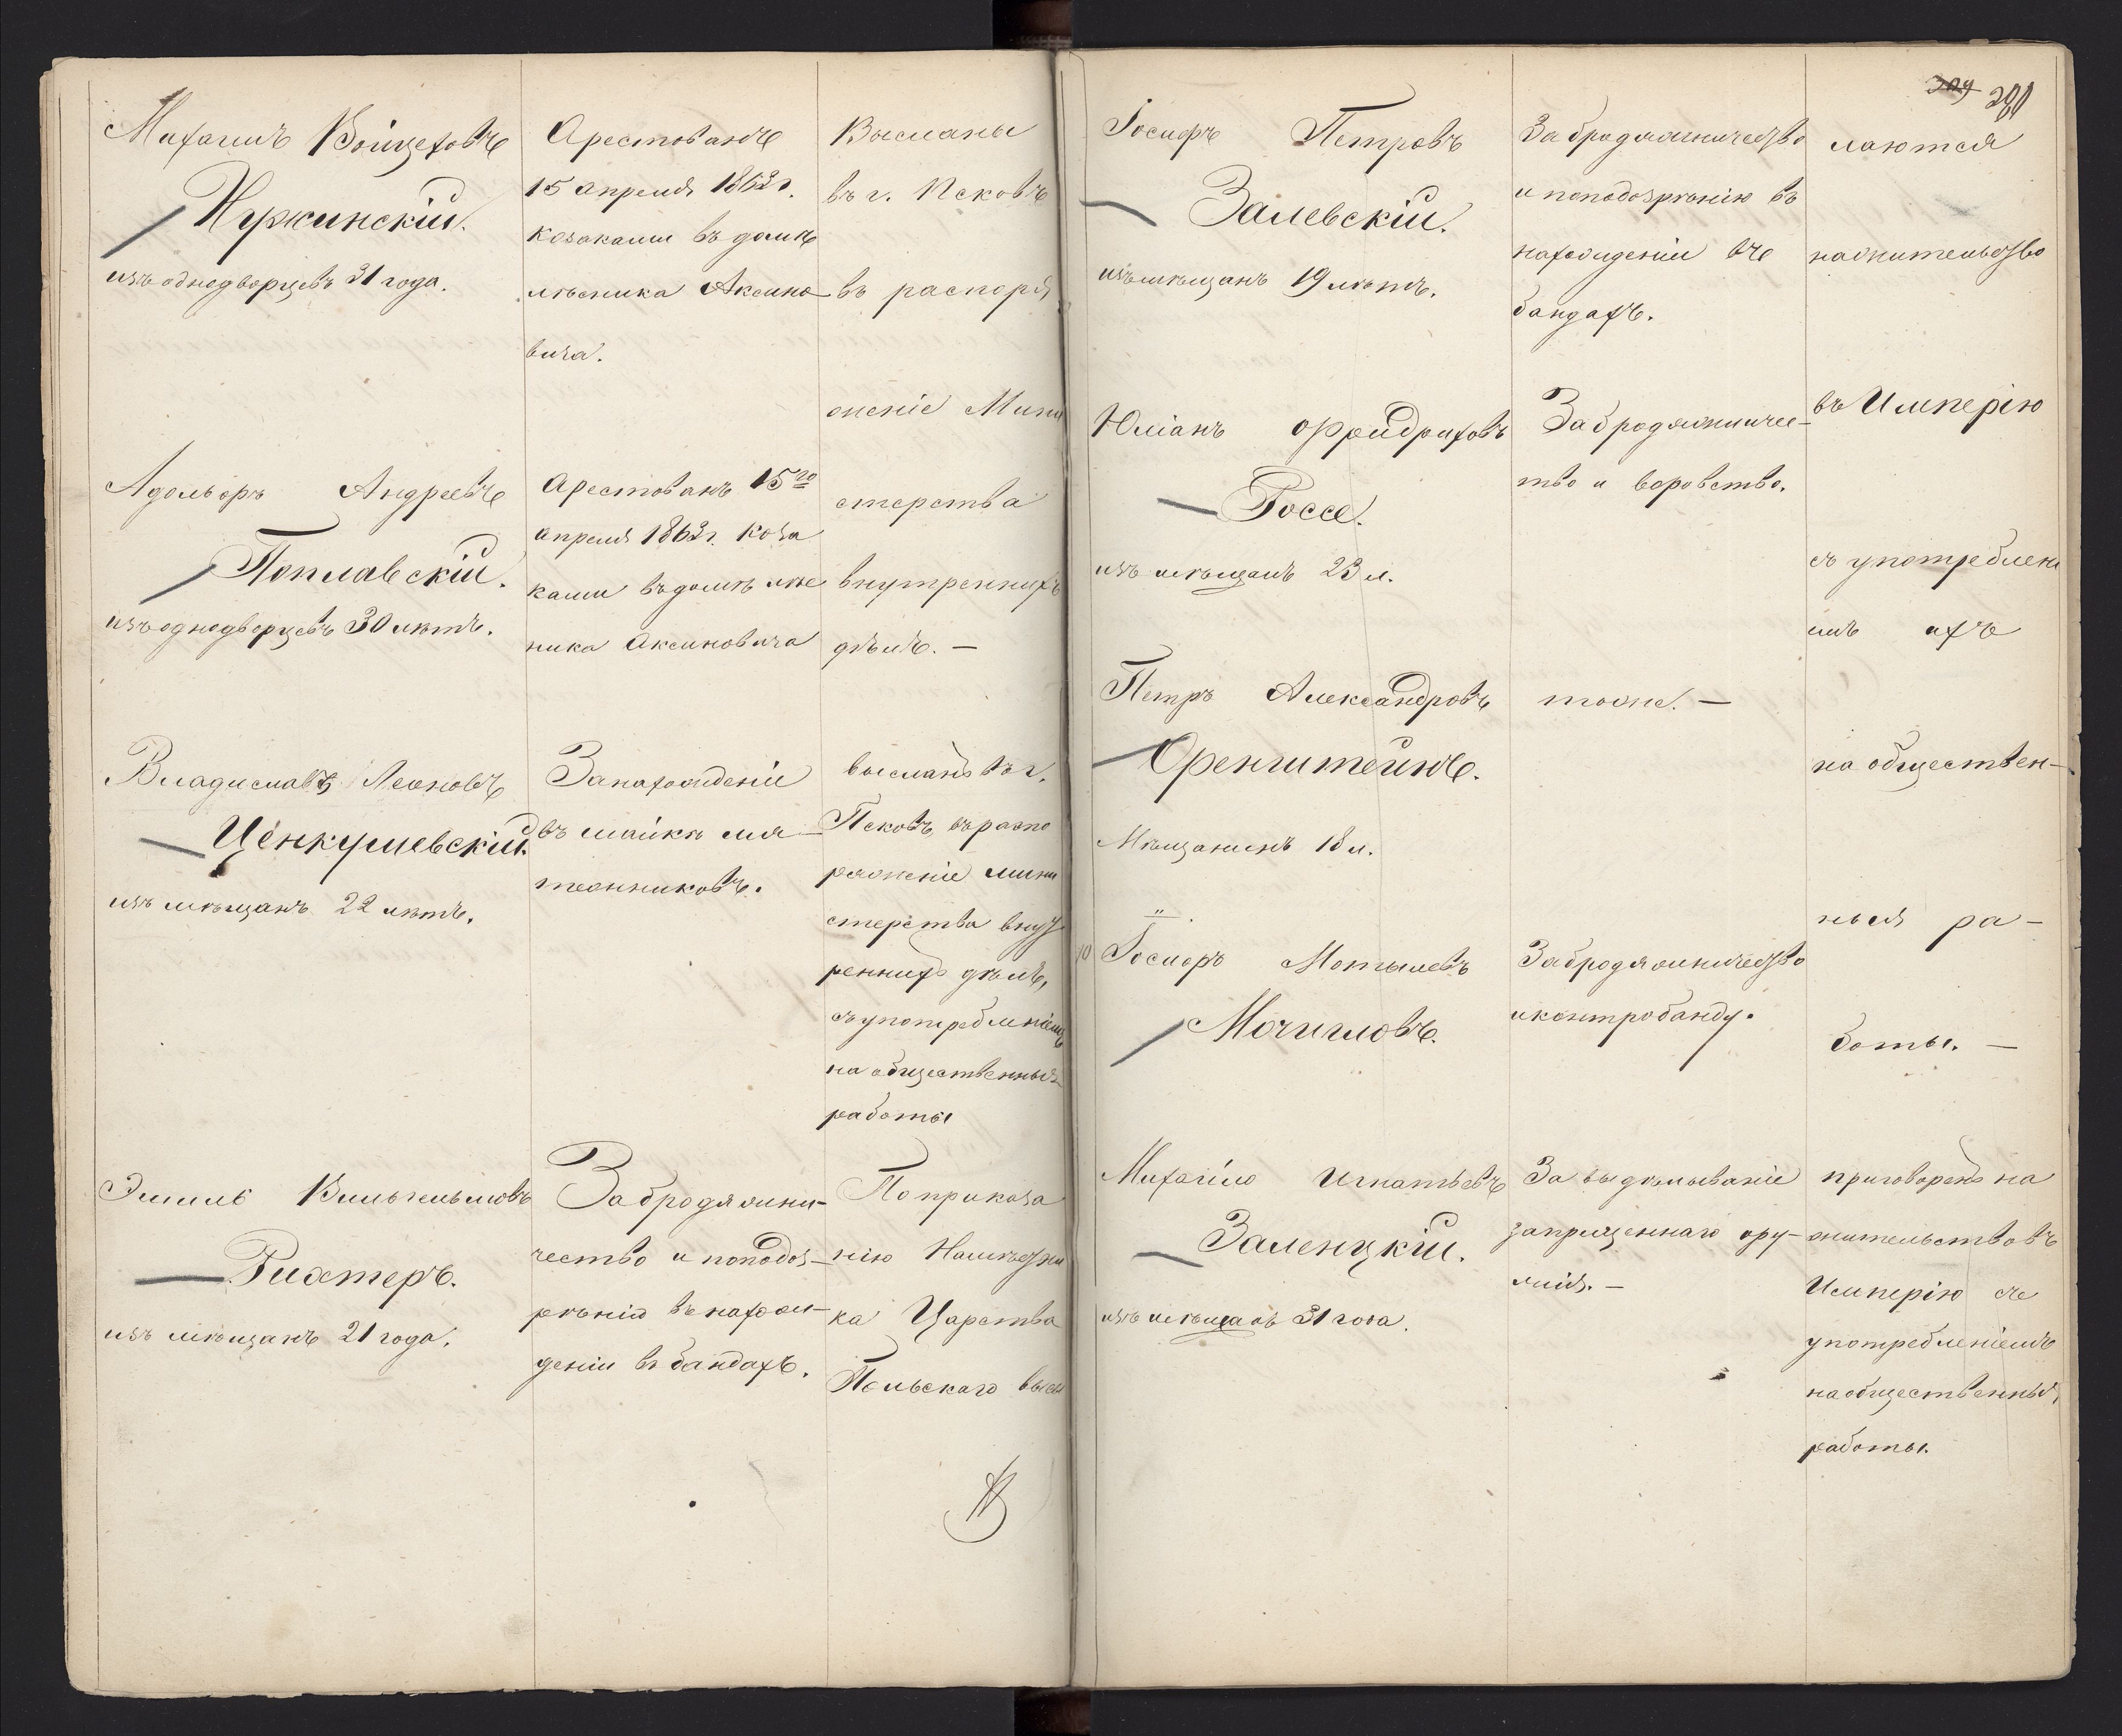 Михаилъ Войцеховъ
Нужинскій.
изъ однодворцевъ 31 года.
Арестованъ
15 апреля 1863 г.
козаками въ доме
лѣсника Аксино-
вича.
Высланы
въ г. Псковъ
въ распоря
женіе Мини
стерства
внутреннихъ
дѣлъ. —
Адольфъ Андреевъ
Поплавскій.
изъ однодворцевъ 30 лѣтъ.
Арестованъ 15го
апреля 1863 г. коза
ками въ домѣ лѣс
ника Аксиновича
Владиславъ Леоновъ
Ценкушевскій.
изъ мѣщанъ 22 лѣтъ.
За нахожденіи
въ шайкѣ мя-
тежниковъ.
высланъ въ г.
Псковъ въ распо
ряженіе мини
стерства внут
реннихъ дѣлъ,
съ употребленіемъ
на общественныя
работы
Эмиль Вильгельмовъ
Рихтеръ.
изъ мѣщанъ 21 года.
За бродяжни-
чество и по подоз-
рѣнію въ нахож-
деніи въ бандахъ.
По приказа
нію Намѣстни
ка Царства
Польскаго высы
309 280
Іосифъ Петровъ
Залевскій.
изъ мѣщанъ 19 лѣтъ.
За бродяжничество
и по подозрѣнію въ
нахожденіи въ
бандахъ.
лаются
на жительство
въ Имперію
съ употреблені
имъ ихъ
на обществен-
ныя ра-
боты. —
Юліанъ Фридриховъ
Россе.
изъ мѣщанъ 23 л.
За бродяжничес-
тво и воровство.
Петръ Александровъ
Оренштейнъ.
Мѣщанинъ 18 л.
тоже. —
10 Іосифъ Мотылевъ
Мочигловъ.
За бродяжничество
и контробанду.
Михайло Игнатьевъ
Заленцкій.
изъ мѣщанъ 31 года.
За выдѣлываніе
запрещеннаго ору-
жія. —
приговоренъ на
жительство въ
Имперію съ
употребленіемъ
на общественныя
работы.